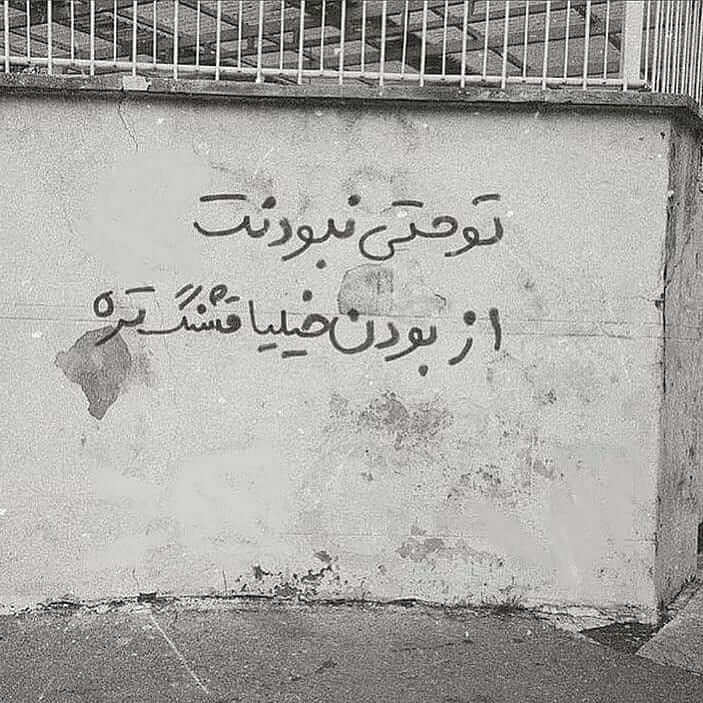 تو حتی نبودنت
از بودن خیلیا قشنگ تره